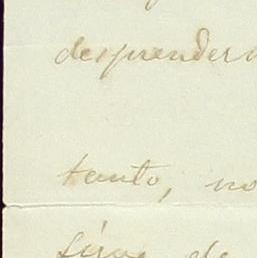 desprender
tanto, no
sirve de